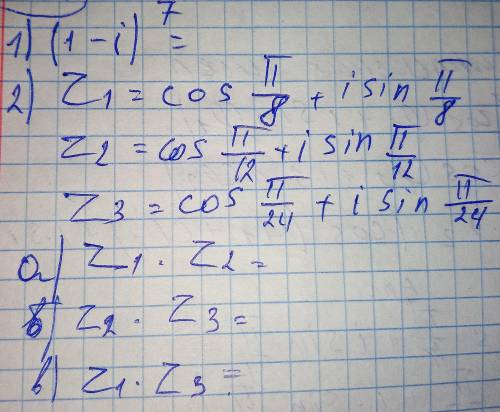 1) (1 - i)^7 =
2) Z1 = cos π/8 + i sin π/8
Z2 = cos π/12 + i sin π/12
Z3 = cos π/24 + i sin π/24
а) Z1 · Z2 =
б) Z2 · Z3 =
в) Z1 · Z3 =